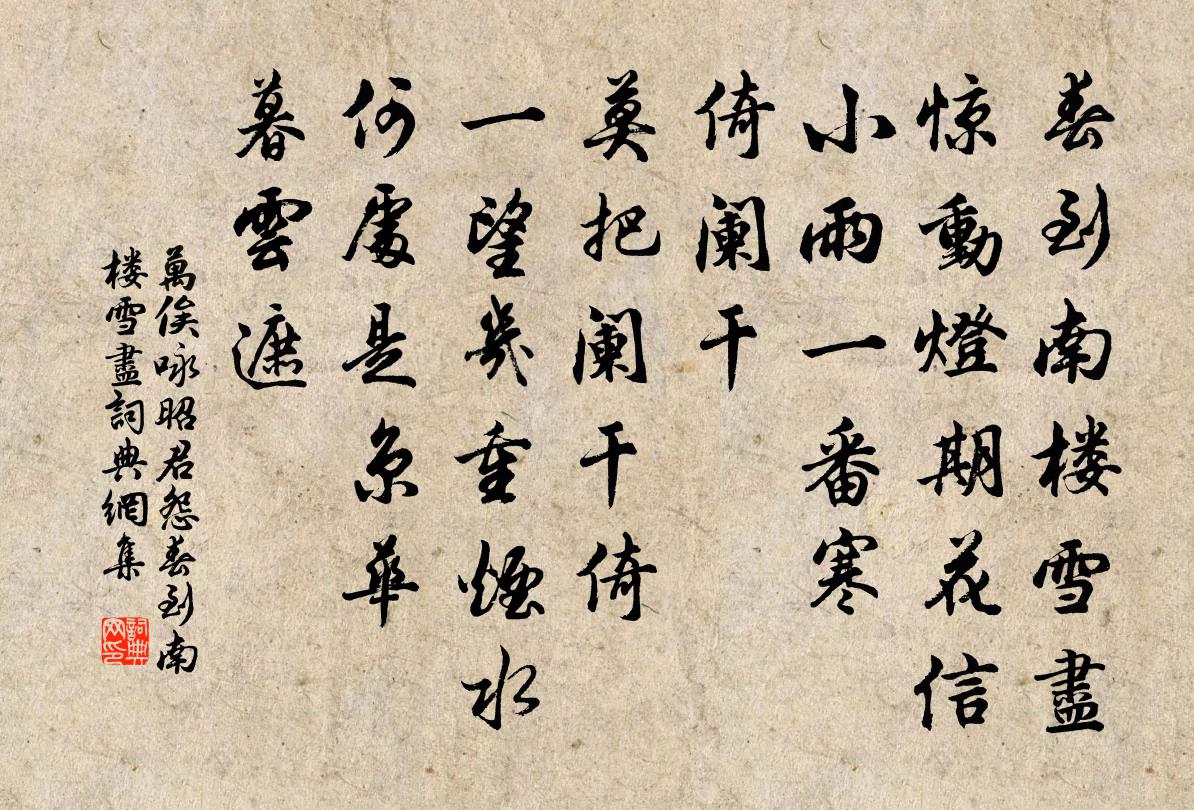 春到南楼雪盡
惊動燈期花信
小雨一番寒
倚阑干
莫把阑干倚
一望幾重煙水
何處是京華
暮雲遮
萬俟咏昭君怨春到南
楼雪盡詞典網集
詞典网印